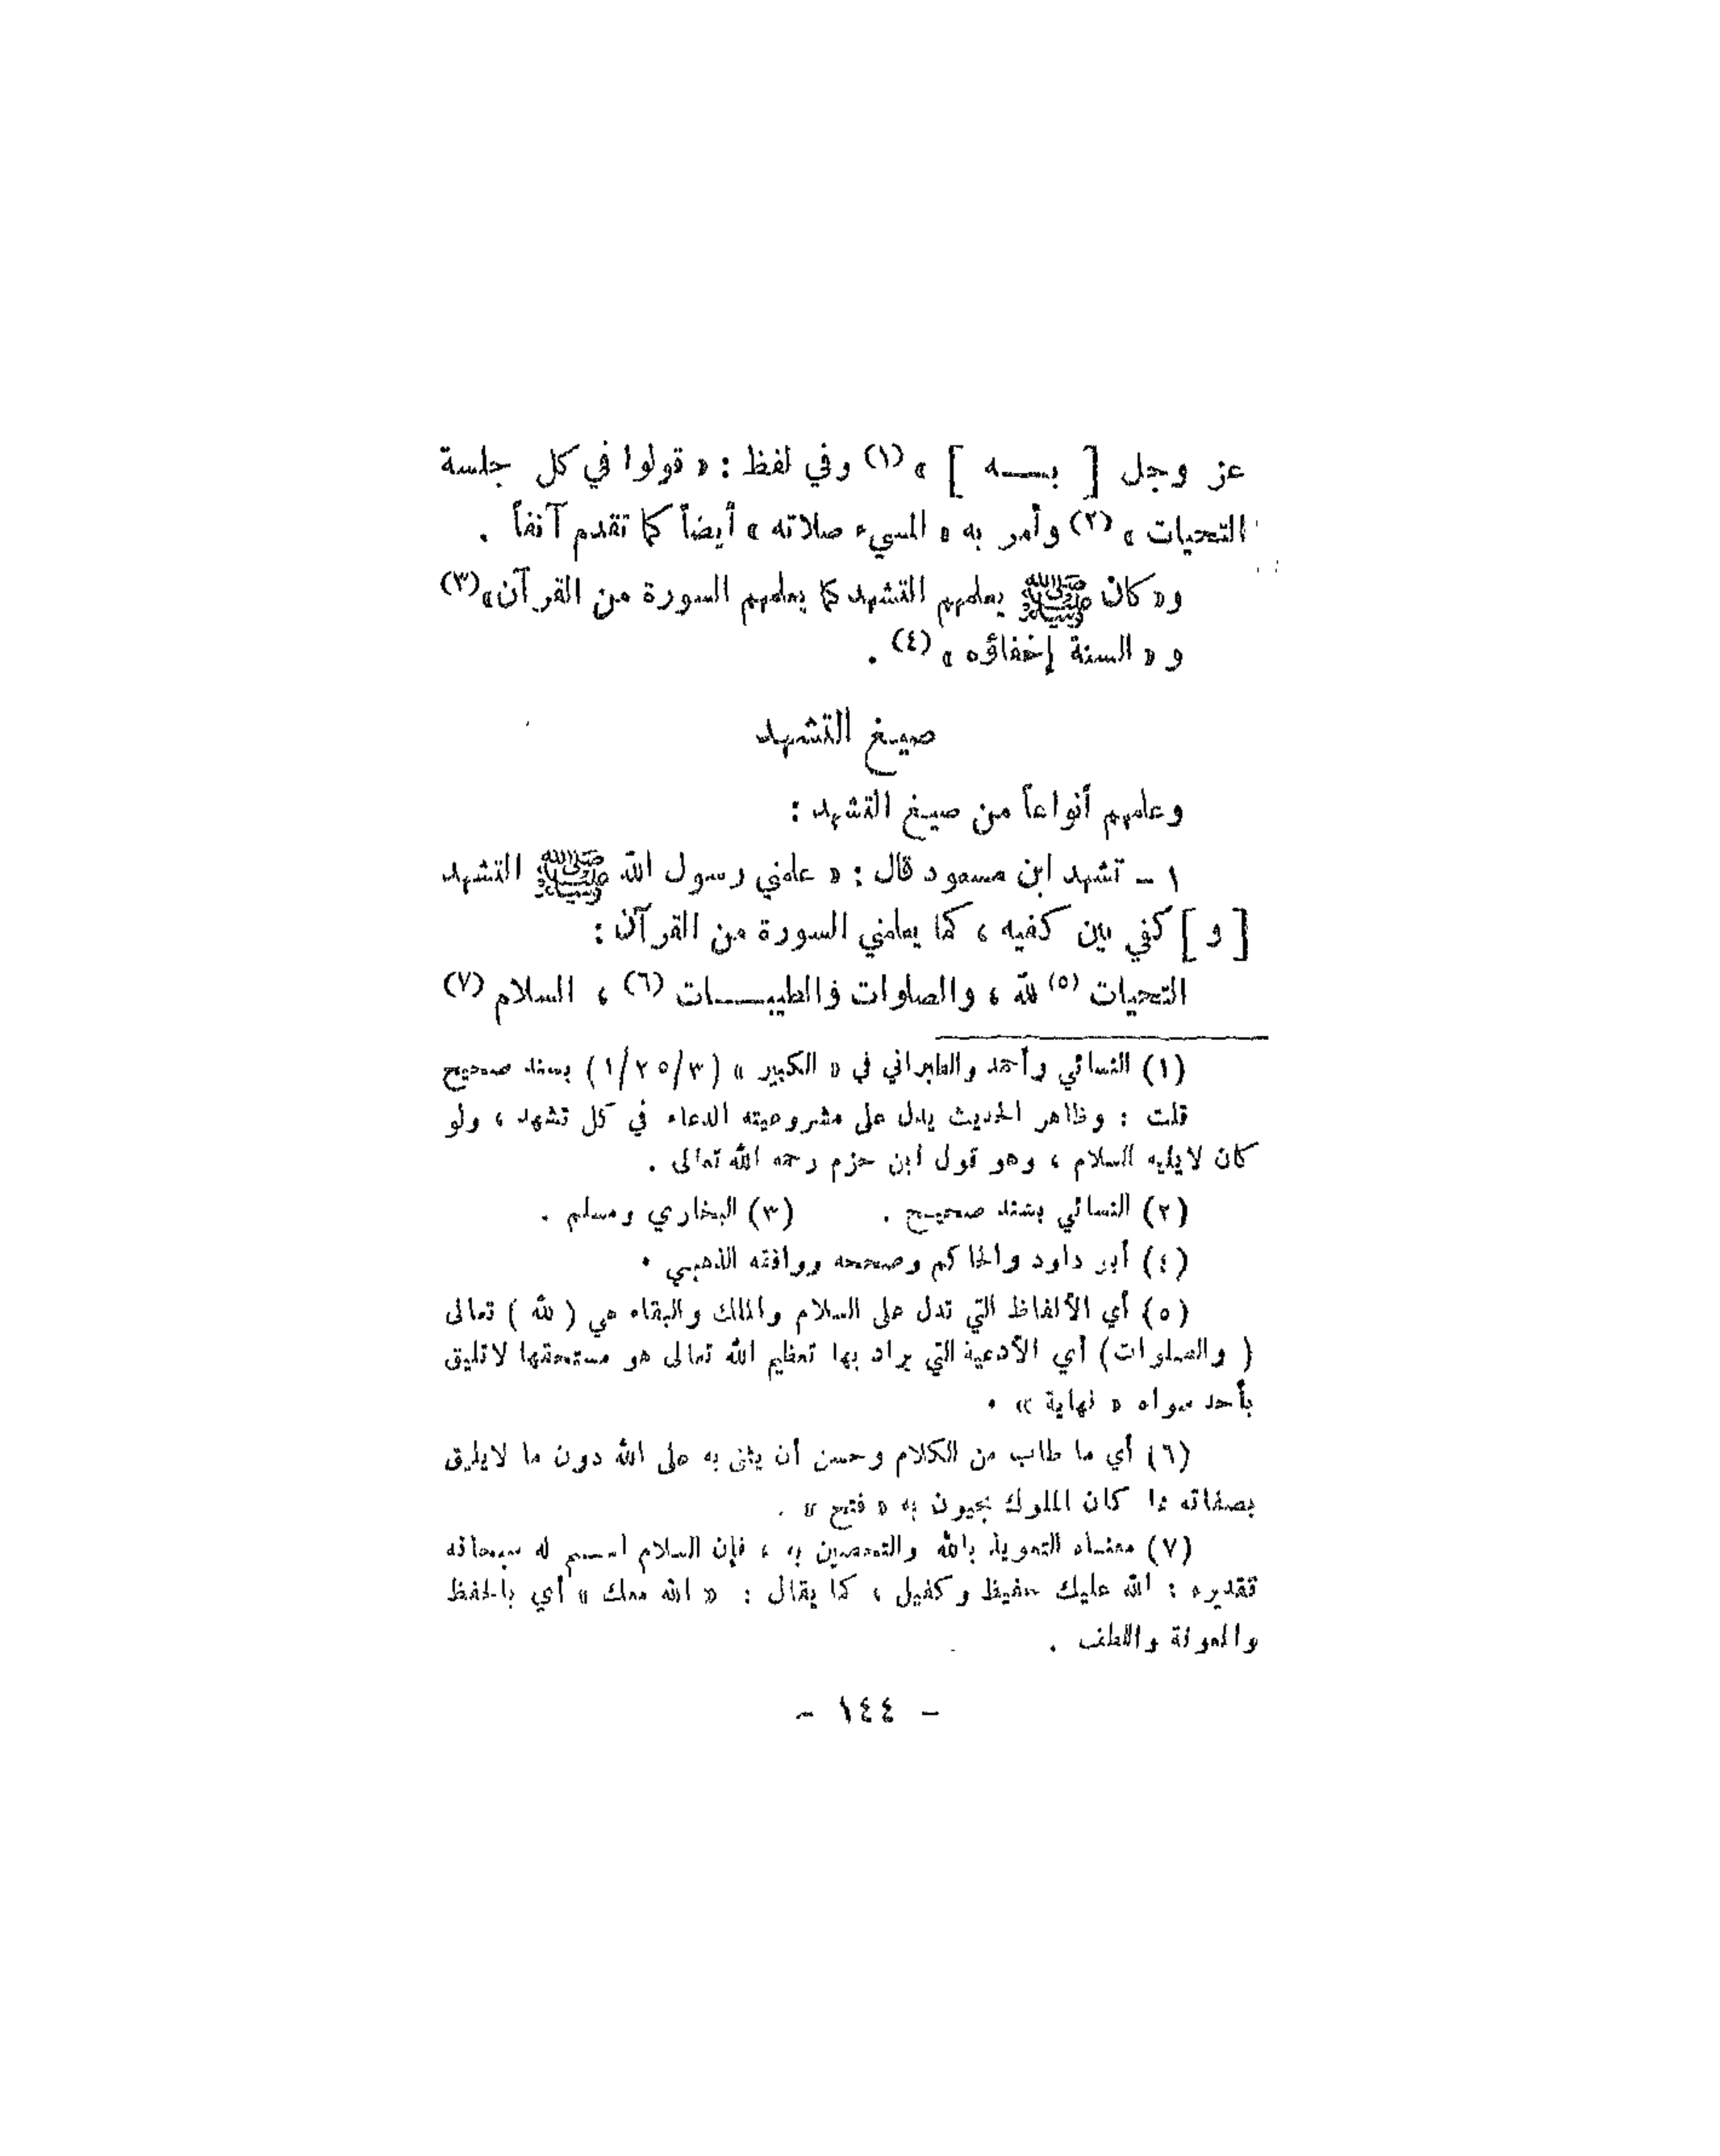 عز وجل [ بـــه ] » (١) وفي لفظ : « قولوا في كل جلسة
التحيات » (٢) وأمر به « المسيء صلاته » أيضاً كما تقدم آنفاً .
و« كان ﷺ يعلمهم التشهد كما يعلمهم السورة من القرآن» (٣)
و « السنة إخفاؤه » (٤) .
صيغ التشهد
وعلمهم أنواعاً من صيغ التشهد :
١ - تشهد ابن مسعود قال : « علمني رسول الله ﷺ التشهد
[ و ] كفي بين كفيه ، كما يعلمني السورة من القرآن :
التحيات (٥) لله ، والصلوات والطيبـــات (٦) ، السلام (٧)
(١) النسائي وأحمد والطبراني في « الكبير » (١/٢٥/٣) بسند صحيح
قلت : وظاهر الحديث يدل على مشروعيته الدعاء في كل تشهد ، ولو
كان لايليه السلام ، وهو قول ابن حزم رحمه الله تعالى .
(٢) النسائي بسند صحيح . (٣) البخاري ومسلم .
(٤) أبو داود والحاكم وصححه ووافقه الذهبي .
(٥) أي الألفاظ التي تدل على السلام والملك والبقاء هي ( لله ) تعالى
( والصلوات) أي الأدعية التي يراد بها تعظيم الله تعالى هو مستحقها لاتليق
بأحد سواه « نهاية » .
(٦) أي ما طاب من الكلام وحسن أن يثنى به على الله دون ما لايليق
بصفاته مما كان الملوك يحيون به « فتح » .
(٧) معنـاه التعويذ بالله والتحصين به ، فإن السلام اسـم له سبحانه
تقديره : الله عليك حفيظ وكفيل ، كما يقال : « الله معك » أي بالحفظ
والمعونة واللطف .
- ١٤٤ -